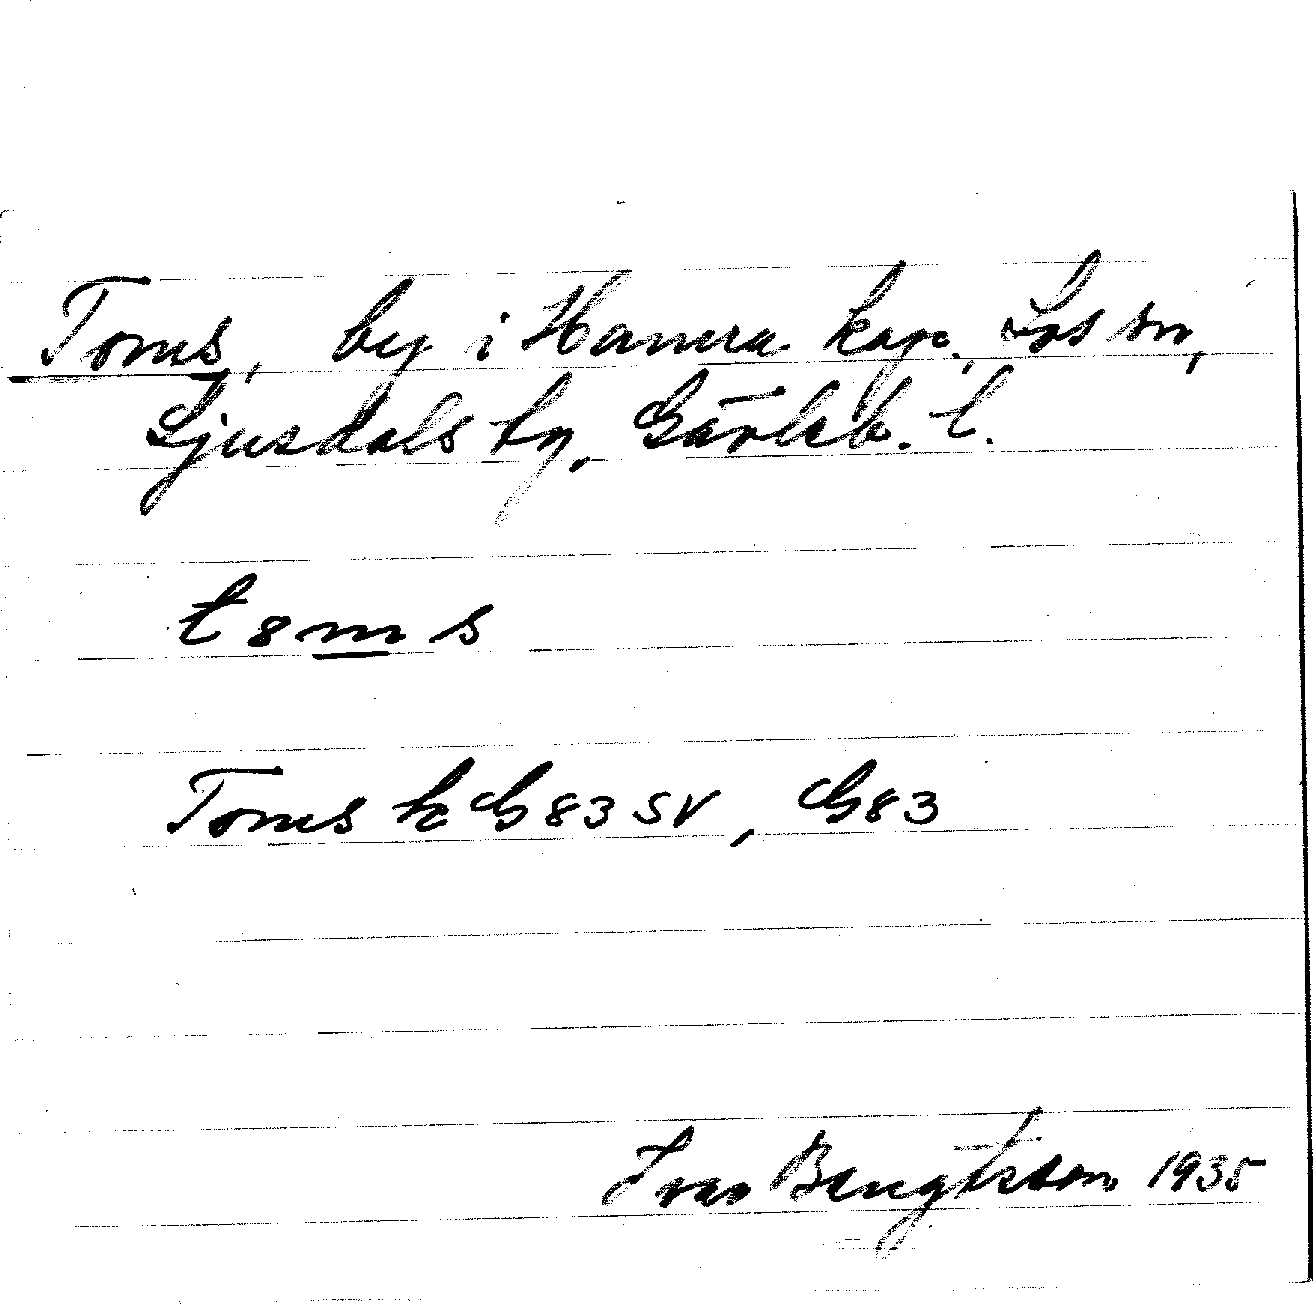 Toms, by i Hamra kap., Los sn,
Ljusdals tg, Gävleb. l.
t8ms
Toms k G83SV, G83
Ivar Bengtsson 1935